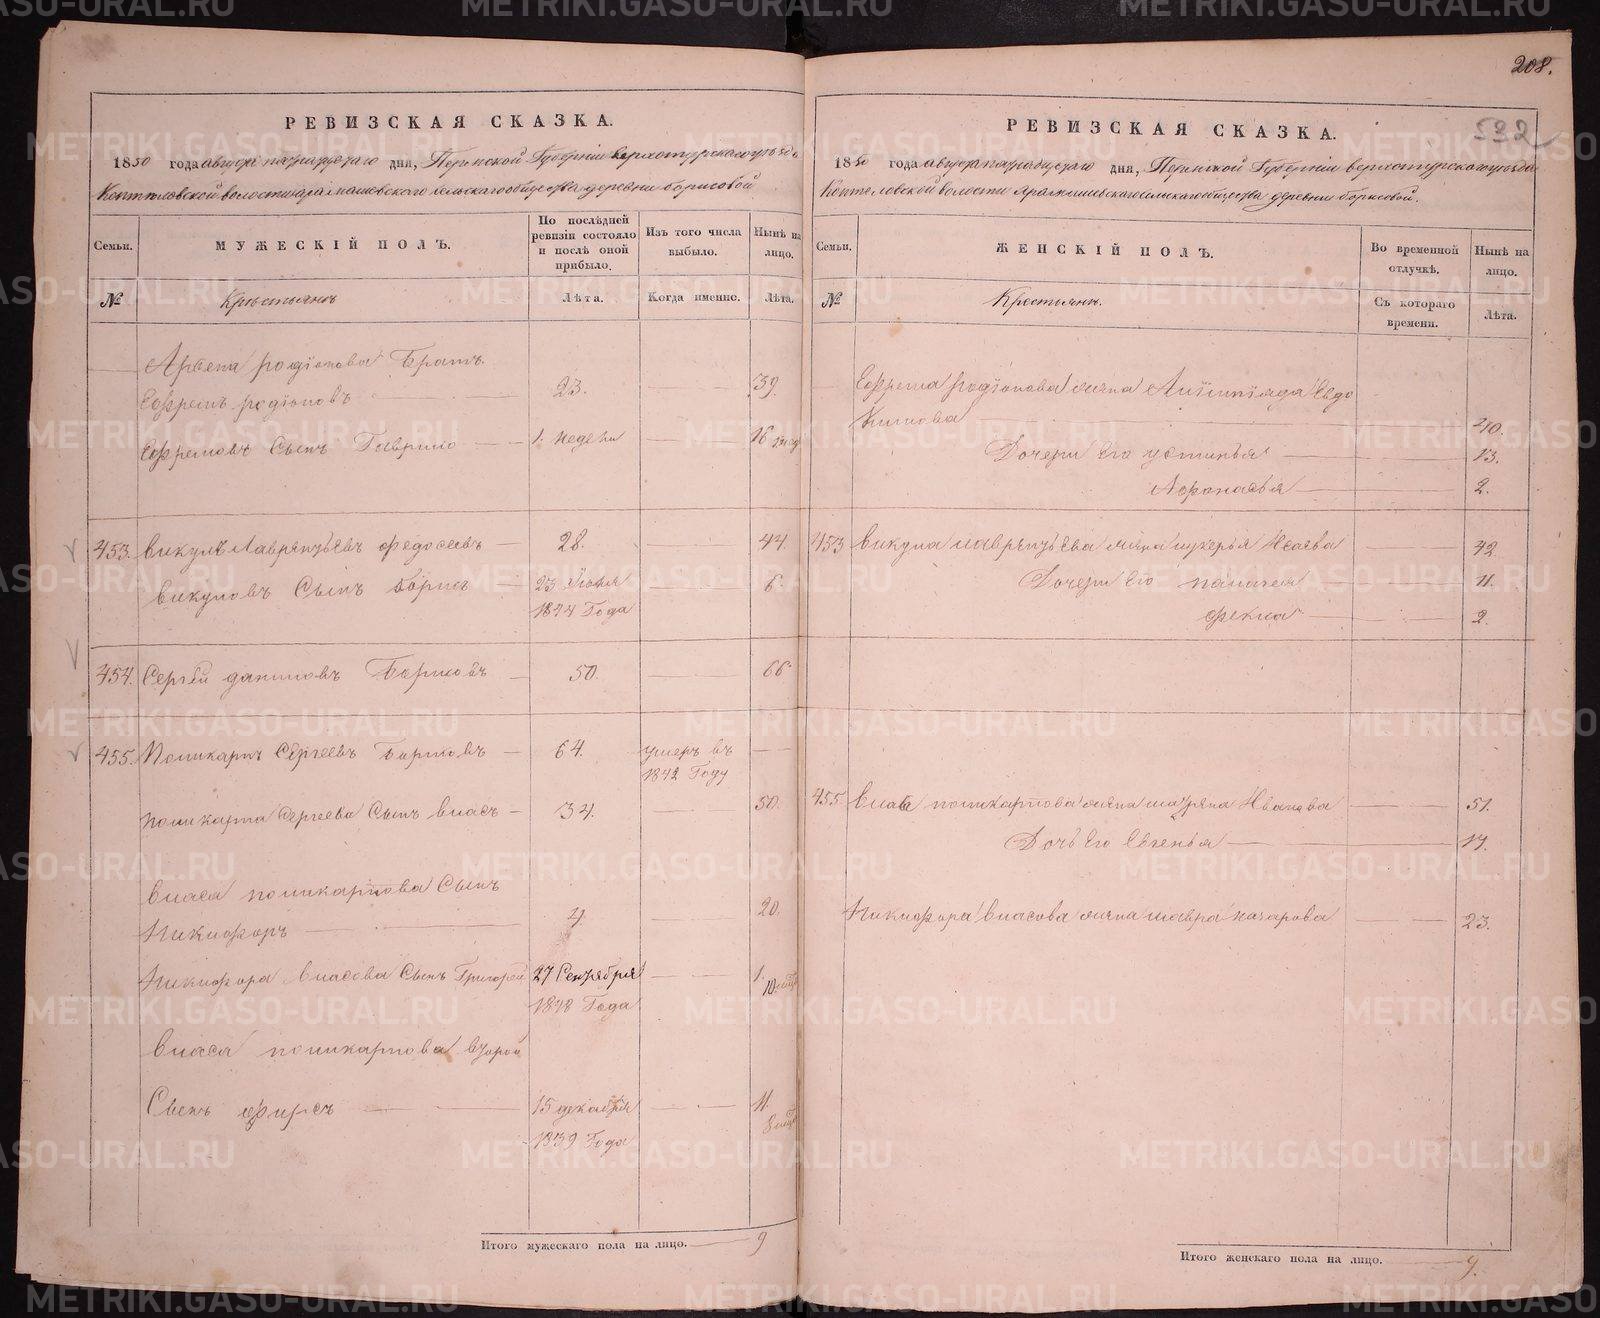 208.
532
РЕВИЗСКАЯ СКАЗКА.
1850 года августа пятнадцатаго дня, Пермской Губернии верхотурскаго уезда
Коптеловской волости арамашевского сельскаго общества деревни борисовой
Семьи.
МУЖЕСКІЙ ПОЛЪ.
По послѣдней ревизіи состояло и послѣ оной прибыло.
Изъ того числа выбыло.
Нынѣ на лицо.
№
Крестьянъ
Лѣта.
Когда именно.
Лѣта.
родіонова Братъ
Ефремъ родіоновъ 23. 39.
Ефремовъ Сынъ Гаврило 1. недели 16
453. викулъ Лаврентьевъ федосеевъ 28. 44.
викуловъ Сынъ борисъ 23 Июля 6.
1844 Года
454. Сергей даниловъ 50. 66.
455. Поликарпъ Сергеевъ 64. умеръ въ
1842 Году
поликарпа Сергеева Сынъ власъ 34. 50.
власа поликарпова Сынъ
Никифоръ 4. 20.
Никифора власова Сынъ Григорей 27 Сентября 1. 10
1848 Года
власа поликарпова второй
Сынъ фирсъ 15 декабря 11. 8
1839 Года
Итого мужескаго пола на лицо. 9
РЕВИЗСКАЯ СКАЗКА.
1850 года августа пятнадцатаго дня, Пермской Губернии верхотурскаго уезда
Коптеловской волости арамашевскаго сельскаго общества деревни борисовой.
Семьи.
ЖЕНСКІЙ ПОЛЪ.
Во временной отлучкѣ.
Нынѣ на лицо.
№
Крестьянъ.
Съ котораго времени.
Лѣта.
Ефрема родіонова жена Евдо
кимова 40.
Дочери Его устинья 13.
Афонасья 2.
453 викула лаврентьева жена лукерья Исаева 42.
Дочери Его палагея 11.
фекла 2.
455. власа поликарпова жена Иванова 51.
Дочь Его Евгенья 17.
Никифора власова жена мавра назарова 23.
Итого женскаго пола на лицо. 9.
METRIKI.GASO-URAL.RU